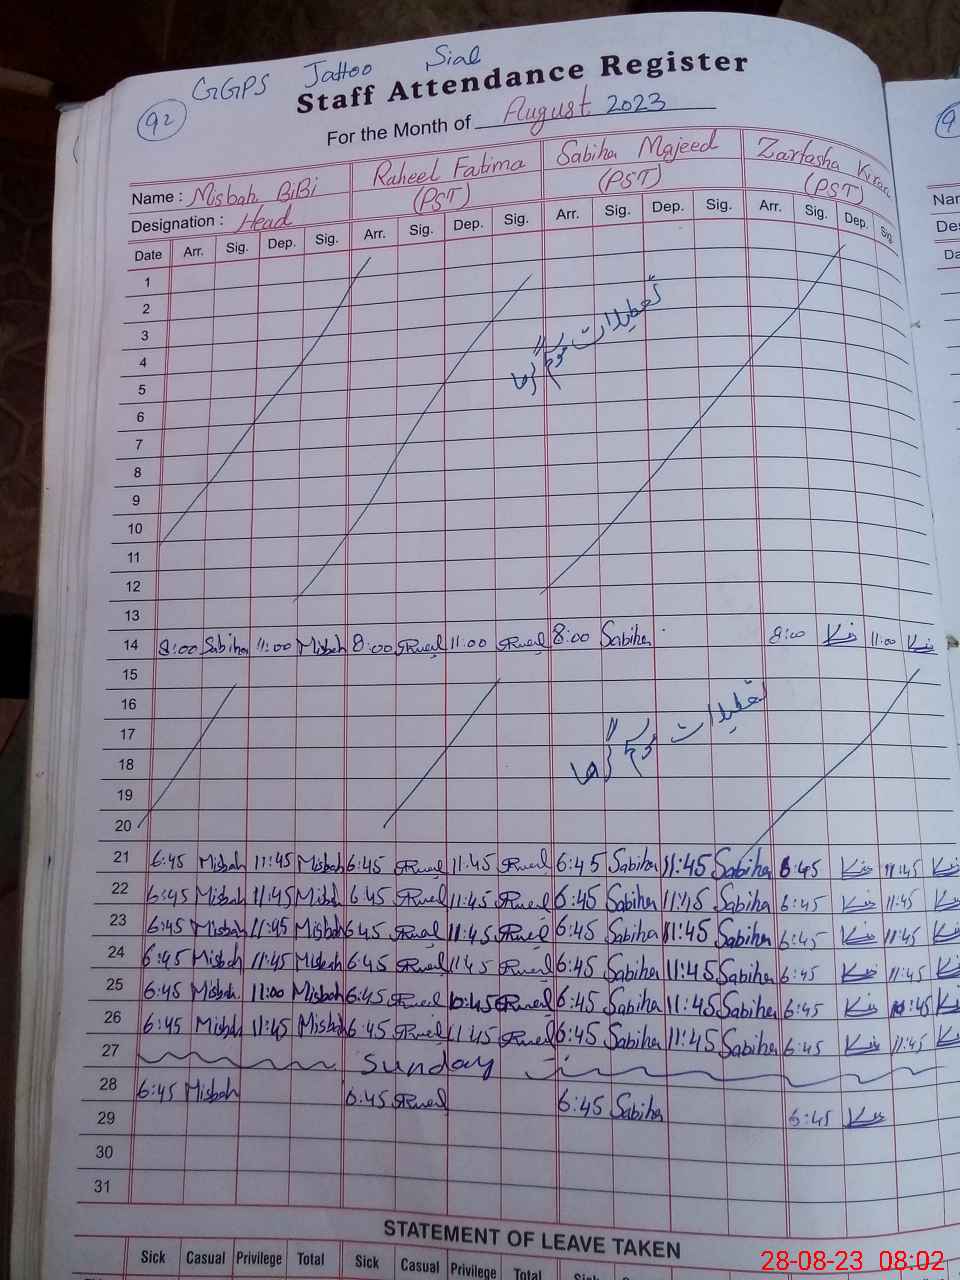 GGPS Jattoo Sial
92
Staff Attendance Register
For the Month of August 2023
Name : Misbah BiBi Raheel Fatima Sabiha Majeed Zartasha Kiran
Designation : Head (PST) (PST) (PST)
Date Arr. Sig. Dep. Sig. Arr. Sig. Dep. Sig. Arr. Sig. Dep. Sig. Arr. Sig. Dep. Sig.
1
2
3
تعطیلات موسم گرما
4
5
6
7
8
9
10
11
12
13
14 8:00 Sabiha 11:00 Misbah 8:00 11:00 8:00 Sabiha 8:00 11:00
15
16
17
تعطیلات موسم گرما
18
19
20
21 6:45 Misbah 11:45 Misbah 6:45 11:45 6:45 Sabiha 11:45 Sabiha 6:45 11:45
22 6:45 Misbah 11:45 Misbah 6:45 11:45 6:45 Sabiha 11:45 Sabiha 6:45 11:45
23 6:45 Misbah 11:45 Misbah 6:45 11:45 6:45 Sabiha 11:45 Sabiha 6:45 11:45
24 6:45 Misbah 11:45 Misbah 6:45 11:45 6:45 Sabiha 11:45 Sabiha 6:45 11:45
25 6:45 Misbah 11:00 Misbah 6:45 10:45 6:45 Sabiha 11:45 Sabiha 6:45 10:45
26 6:45 Misbah 11:45 Misbah 6:45 11:45 6:45 Sabiha 11:45 Sabiha 6:45 11:45
27 Sunday
28 6:45 Misbah 6:45 6:45 Sabiha 6:45
29
30
31
STATEMENT OF LEAVE TAKEN
Sick Casual Privilege Total Sick Casual Privilege Total Sick
28-08-23 08:02